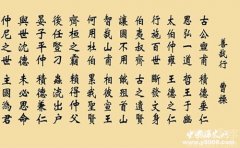 善哉行 曹操
古公亶甫 積德垂仁
思弘一道 哲王於豳
太伯仲雍 王德之仁
行施百世 斷髮文身
伯夷叔齊 古之遺賢
讓國不用 餓殂首山
智哉山甫 相彼宣王
何用杜伯 累我聖賢
齊桓之霸 賴得仲父
後任豎刁 蟲流出戶
晏子平仲 積德兼仁
與世沈德 未必思命
仲尼之世 主國為君